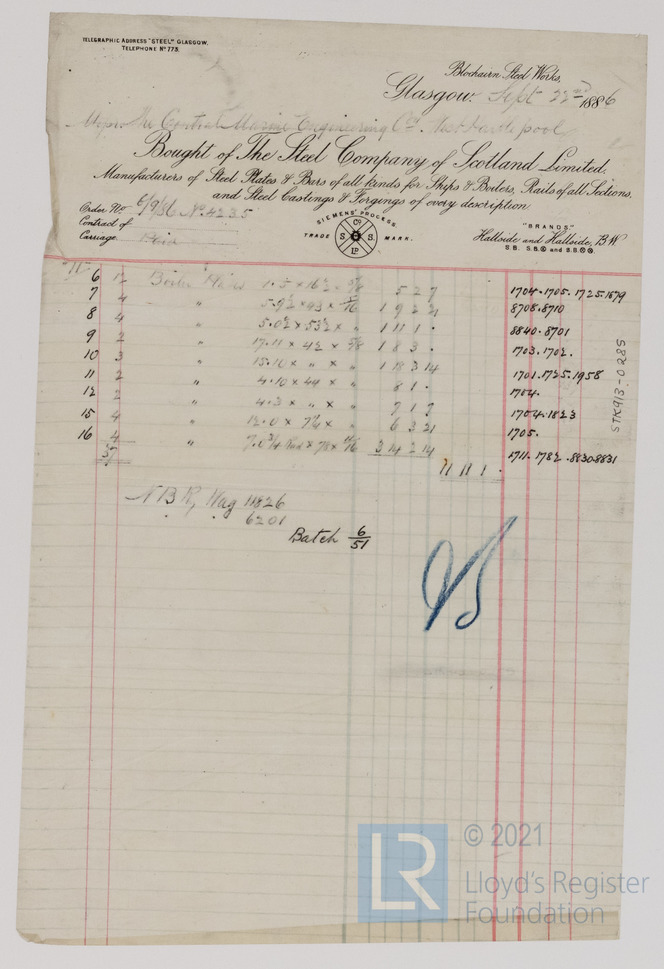 TELEGRAPHIC ADDRESS "STEEL" GLASGOW.
TELEPHONE Nº 773.
Blochairn Steel Works,
Glasgow. Sept 22nd 1886
Messrs The Central Marine Engineering Co. West Hartlepool
Bought of The Steel Company of Scotland Limited.
Manufacturers of Steel Plates & Bars of all kinds for Ships & Boilers, Rails of all Sections,
and Steel Castings & Forgings of every description
Order No. 6/9/86 No. 4235
Contract of
Carriage. Paid
SIEMENS' PROCESS.
TRADE MARK.
Co S S H LD
"BRANDS"
Hallside and Hallside, B W
S.B. S.B. and S.B.
6 12 Boiler Plates 5 2 7 1704.1705.1725.1579
7 4 " 5.9½ × 43 × 1 9 2 21 8708.8710
8 4 " 5.0½ × 53½ × " 1 11 1 . 8840.8701
9 2 " 17.11 × 42 × 5/8 1 8 3 . 1703.1702.
10 3 " 15.10 × " × " 1 18 3 14
11 2 " 4.10 × 44 × " 8 1 . 1701.1725.1958
12 2 " 4.3 × " × " 7 1 7 1704.
15 4 " 12.0 × 7¼ × " 6 3 21 1704.1823
16 4 " 3 14 2 14 1705.
37 11 11 1 . 1711.1782.8830.8831
N B R, Wag 11826
" 6201
Batch 6/51
STK913-0285
LR
© 2021
Lloyd's Register
Foundation